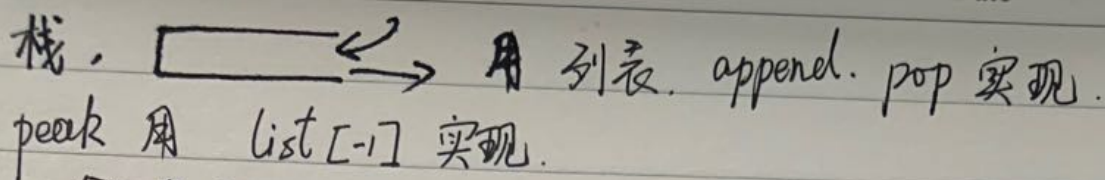 栈. 用 列表. append. pop 实现.
peak 用 list[-1] 实现.